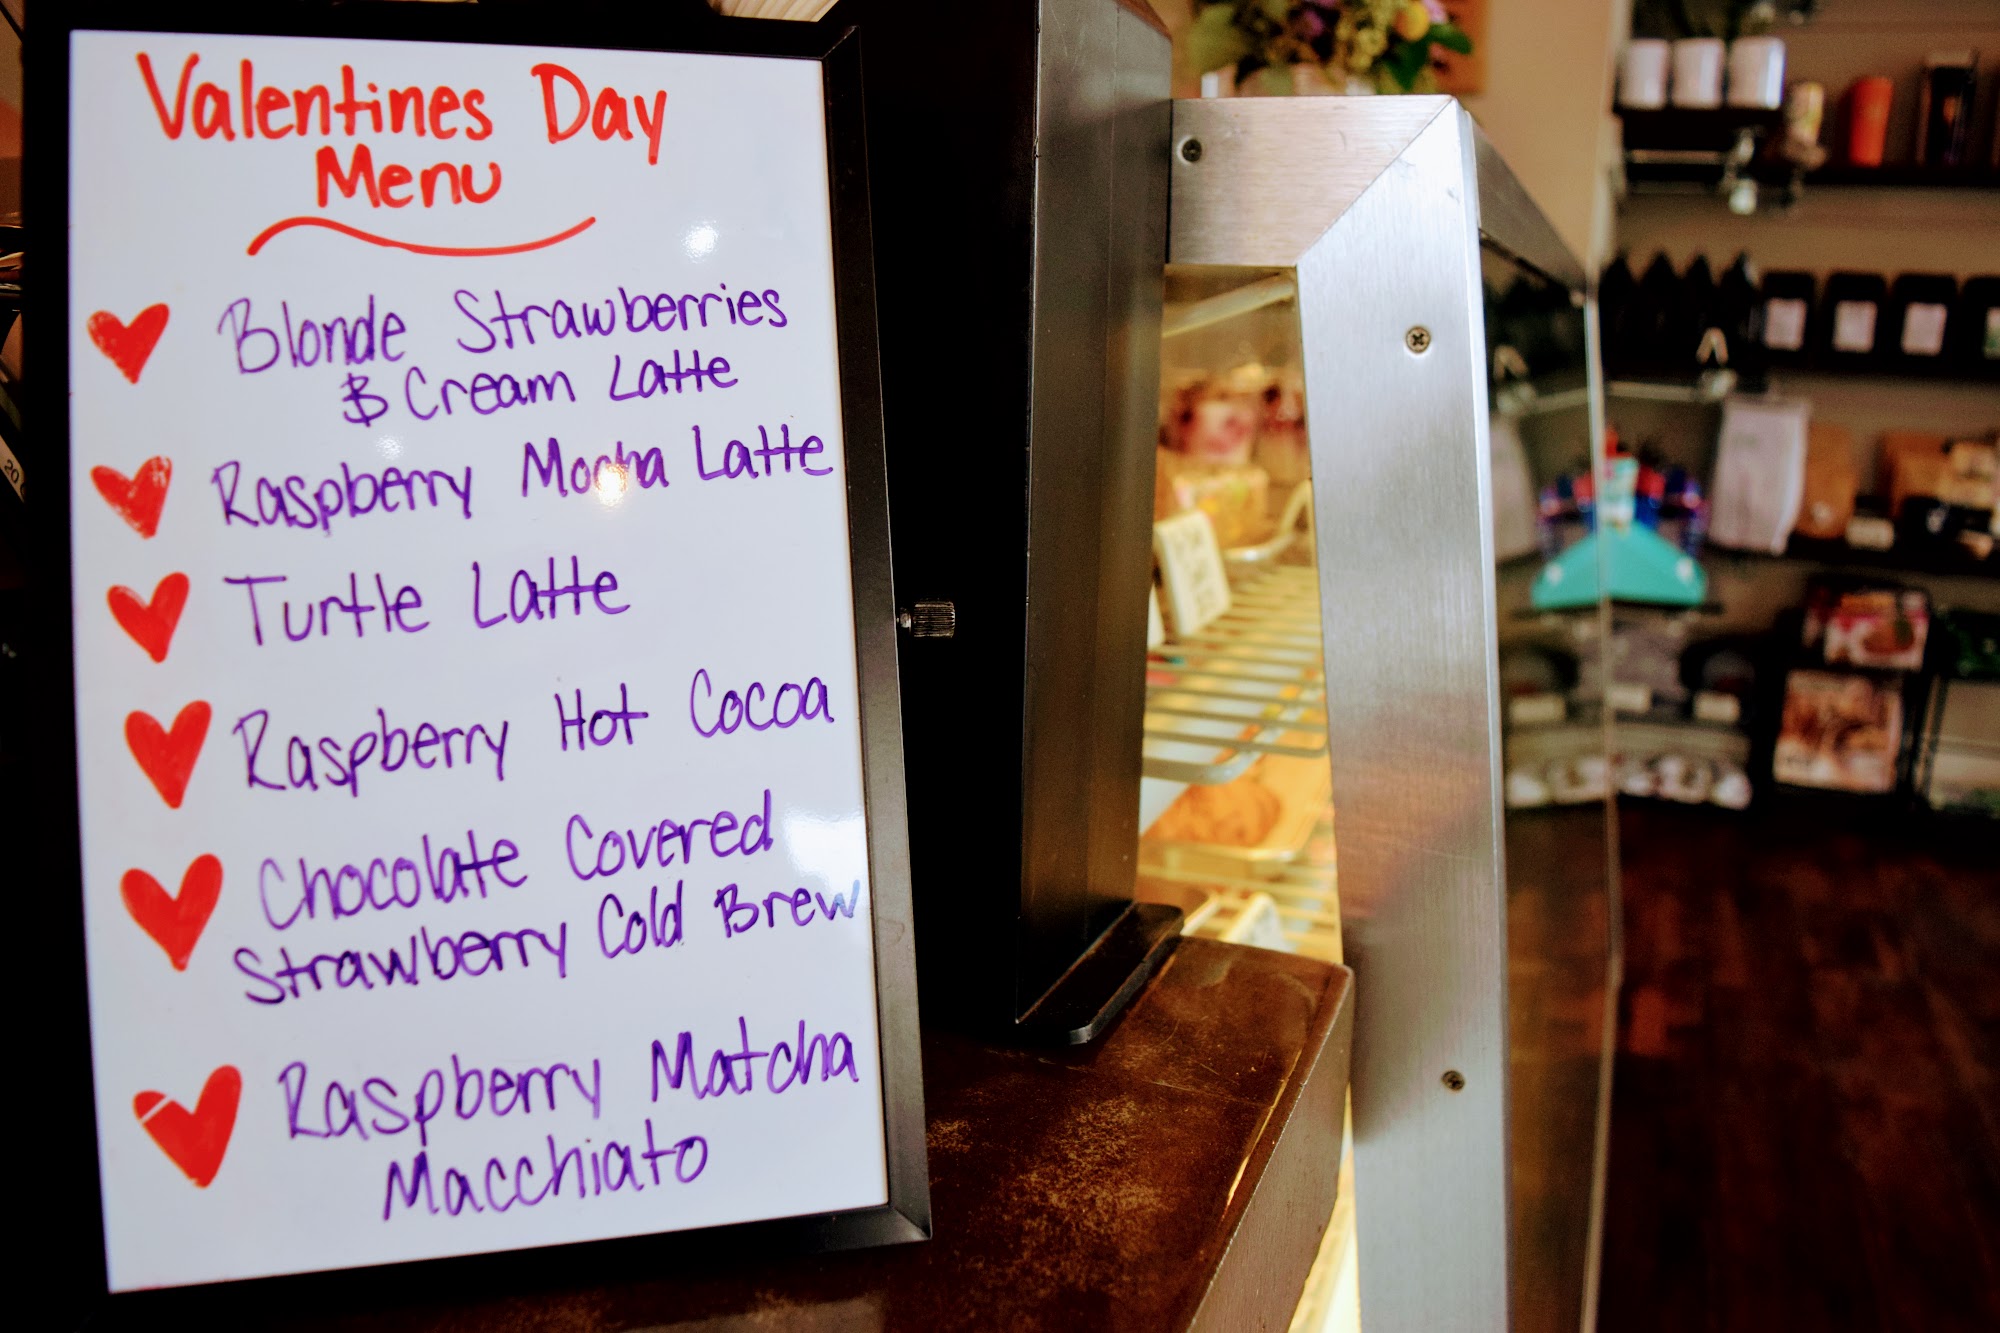 Valentines Day
Menu
Blonde Strawberries
& Cream Latte
Raspberry Mocha Latte
Turtle Latte
Raspberry Hot Cocoa
Chocolate Covered
Strawberry Cold Brew
Raspberry Matcha
Macchiato
20